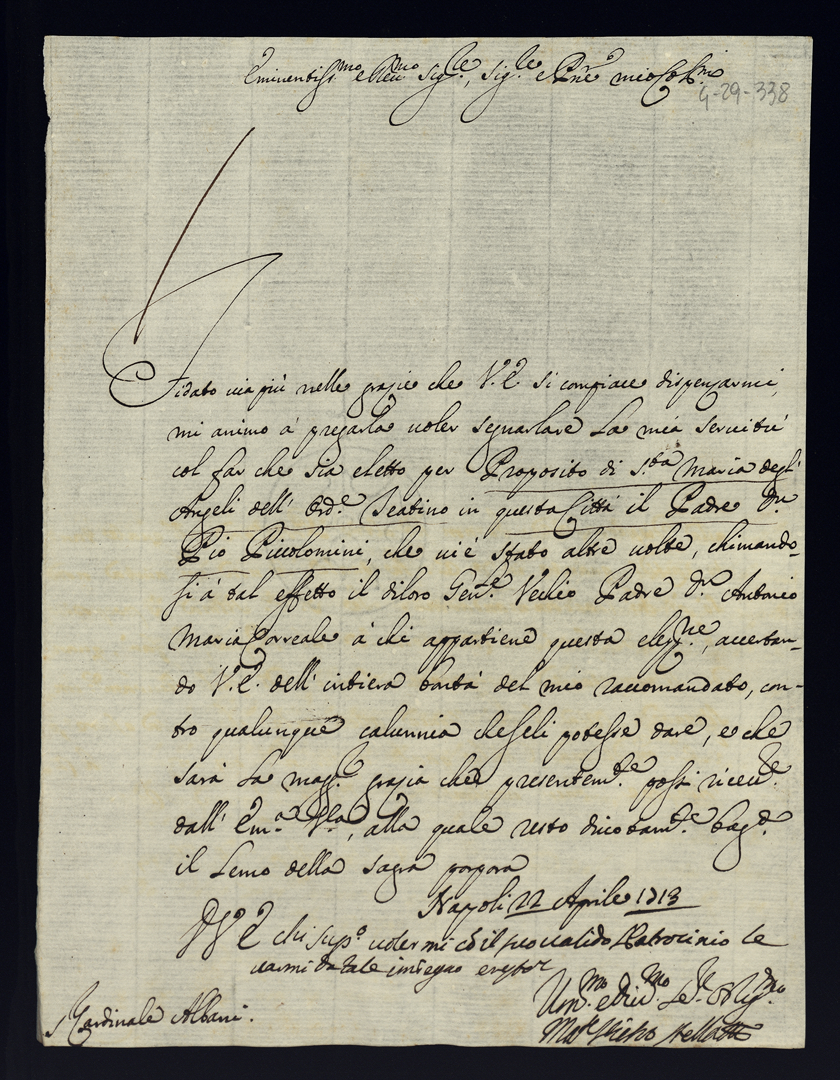 Eminentiss.mo e Rev.mo Sig.re, Sig.re e Pne mio Col.mo
4-29-338
Fidato via più nelle grazie che V.E. si compiace dispenzarmi,
mi animo à pregarla voler segnarlare la mia servitù
col far che sia eletto per Proposito di S.ta Maria degl'
Angeli dell' Ord.e Teatino in questa Città il Padre Dn.
Pio Piccolomini, che vi è stato altre volte, chimando-
si à tal effetto il diloro Gen.le Vechio Padre Dn. Antonio
Maria Correale à chi appartiene questa elez.ne, accertan-
do V.E. dell' intiera bontà del mio raccomandato, con-
tro qualunque calunnia cheseli potesse dare, e che
sarà la magg.e grazia che presentem.te possi ricev.re
dall' Em.a V.ra, alla quale resto divotam.te bag.do
il Lemo della sagra porpora
Napoli 22 Aprile 1713
V.E. chi supp.o volermi cò il suo valido Patrocinio le
varmi da tale impegno e resto
Um.mo e Div.mo Se.re Oblig.mo
S Cardinale Albani.